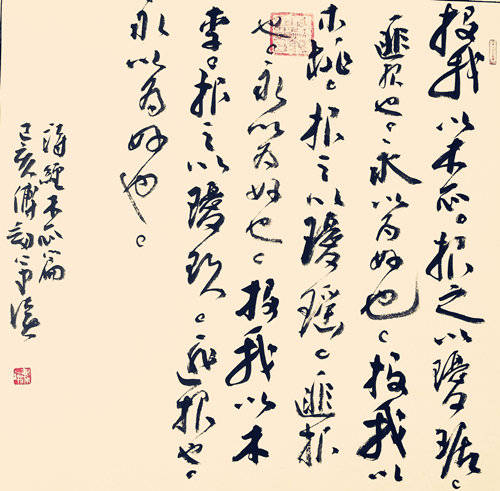 投我以木瓜。报之以瓊琚。
匪报也。永以为好也。投我以
木桃。报之以瓊瑶。匪报
也。永以为好也。投我以木
李。报之以瓊玖。匪报也。
永以为好也。
诗经木瓜篇
己亥傅